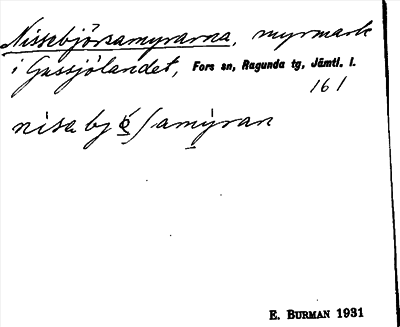 Nissebjörsamyrarna, myrmark
i Gassjölandet, Fors sn, Ragunda tg, Jämtl. l.
161
nisabjö̱ʃamy̱ran
E. BURMAN 1931